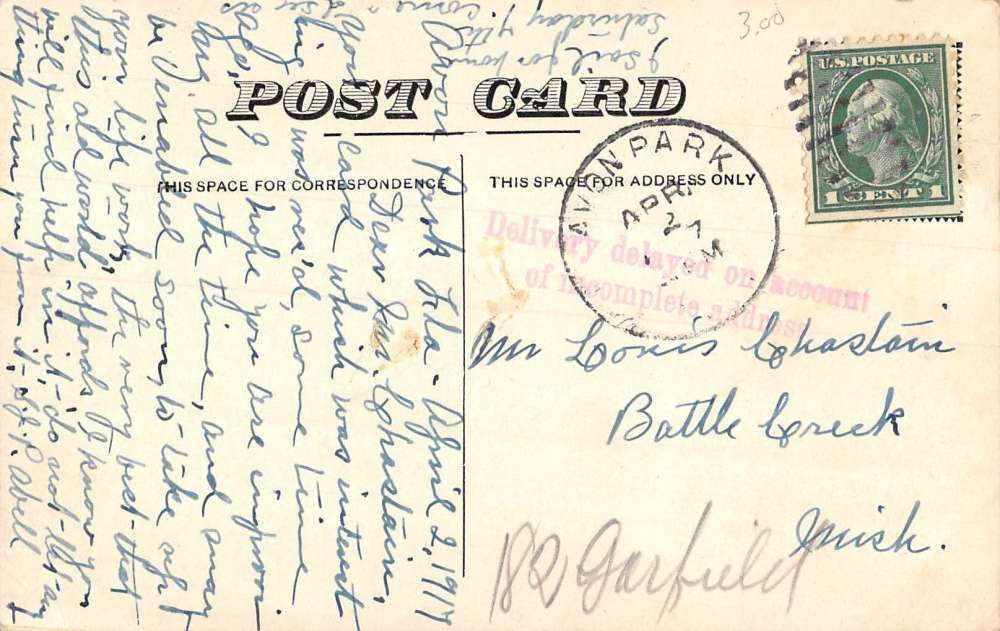 POST CARD
THIS SPACE FOR CORRESPONDENCE
THIS SPACE FOR ADDRESS ONLY
3.00
U.S. POSTAGE
1 CENT 1
AVON PARK
APR
Delivery delayed on account
of incomplete address.
Mr Louis Chastain
Battle Creek
Mich.
182 Garfield
Avon Park Fla - April 2, 1917
Dear Mr. Chastain,
Your card which was interest
ing was rec'd, some time
ago, I hope you are improv-
ing all the time, and may
be enabled soon, to take up
your life work, the very best that
this old world affords. I know you
will find help in it - do not let any
thing turn you from it.
I sail for home
Saturday 7th.
come & see us